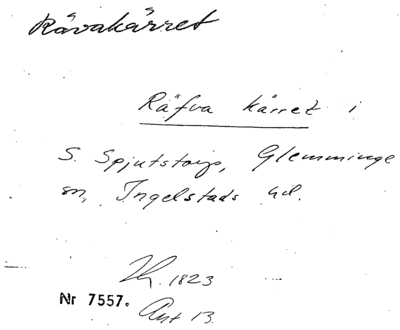 Rävakärret
Räfva kärret i
S. Spjutstorp, Glemminge
sn, Ingelstads hd.
1823
Nr 7557.
Ant 13.